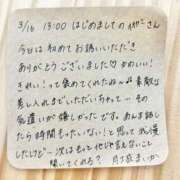 3/16 13:00 はじめましての さん
今日は初めてお誘いいただき
ありがとうございました♡かわいい！
きれい！って褒めてくれたね〜 素敵な
差し入れまでいただいちゃって…その
気遣いが嬉しかったです。あんま話し
たら時間もったいない！と思って我慢
したけど…次はもっと
聞いてくれる？